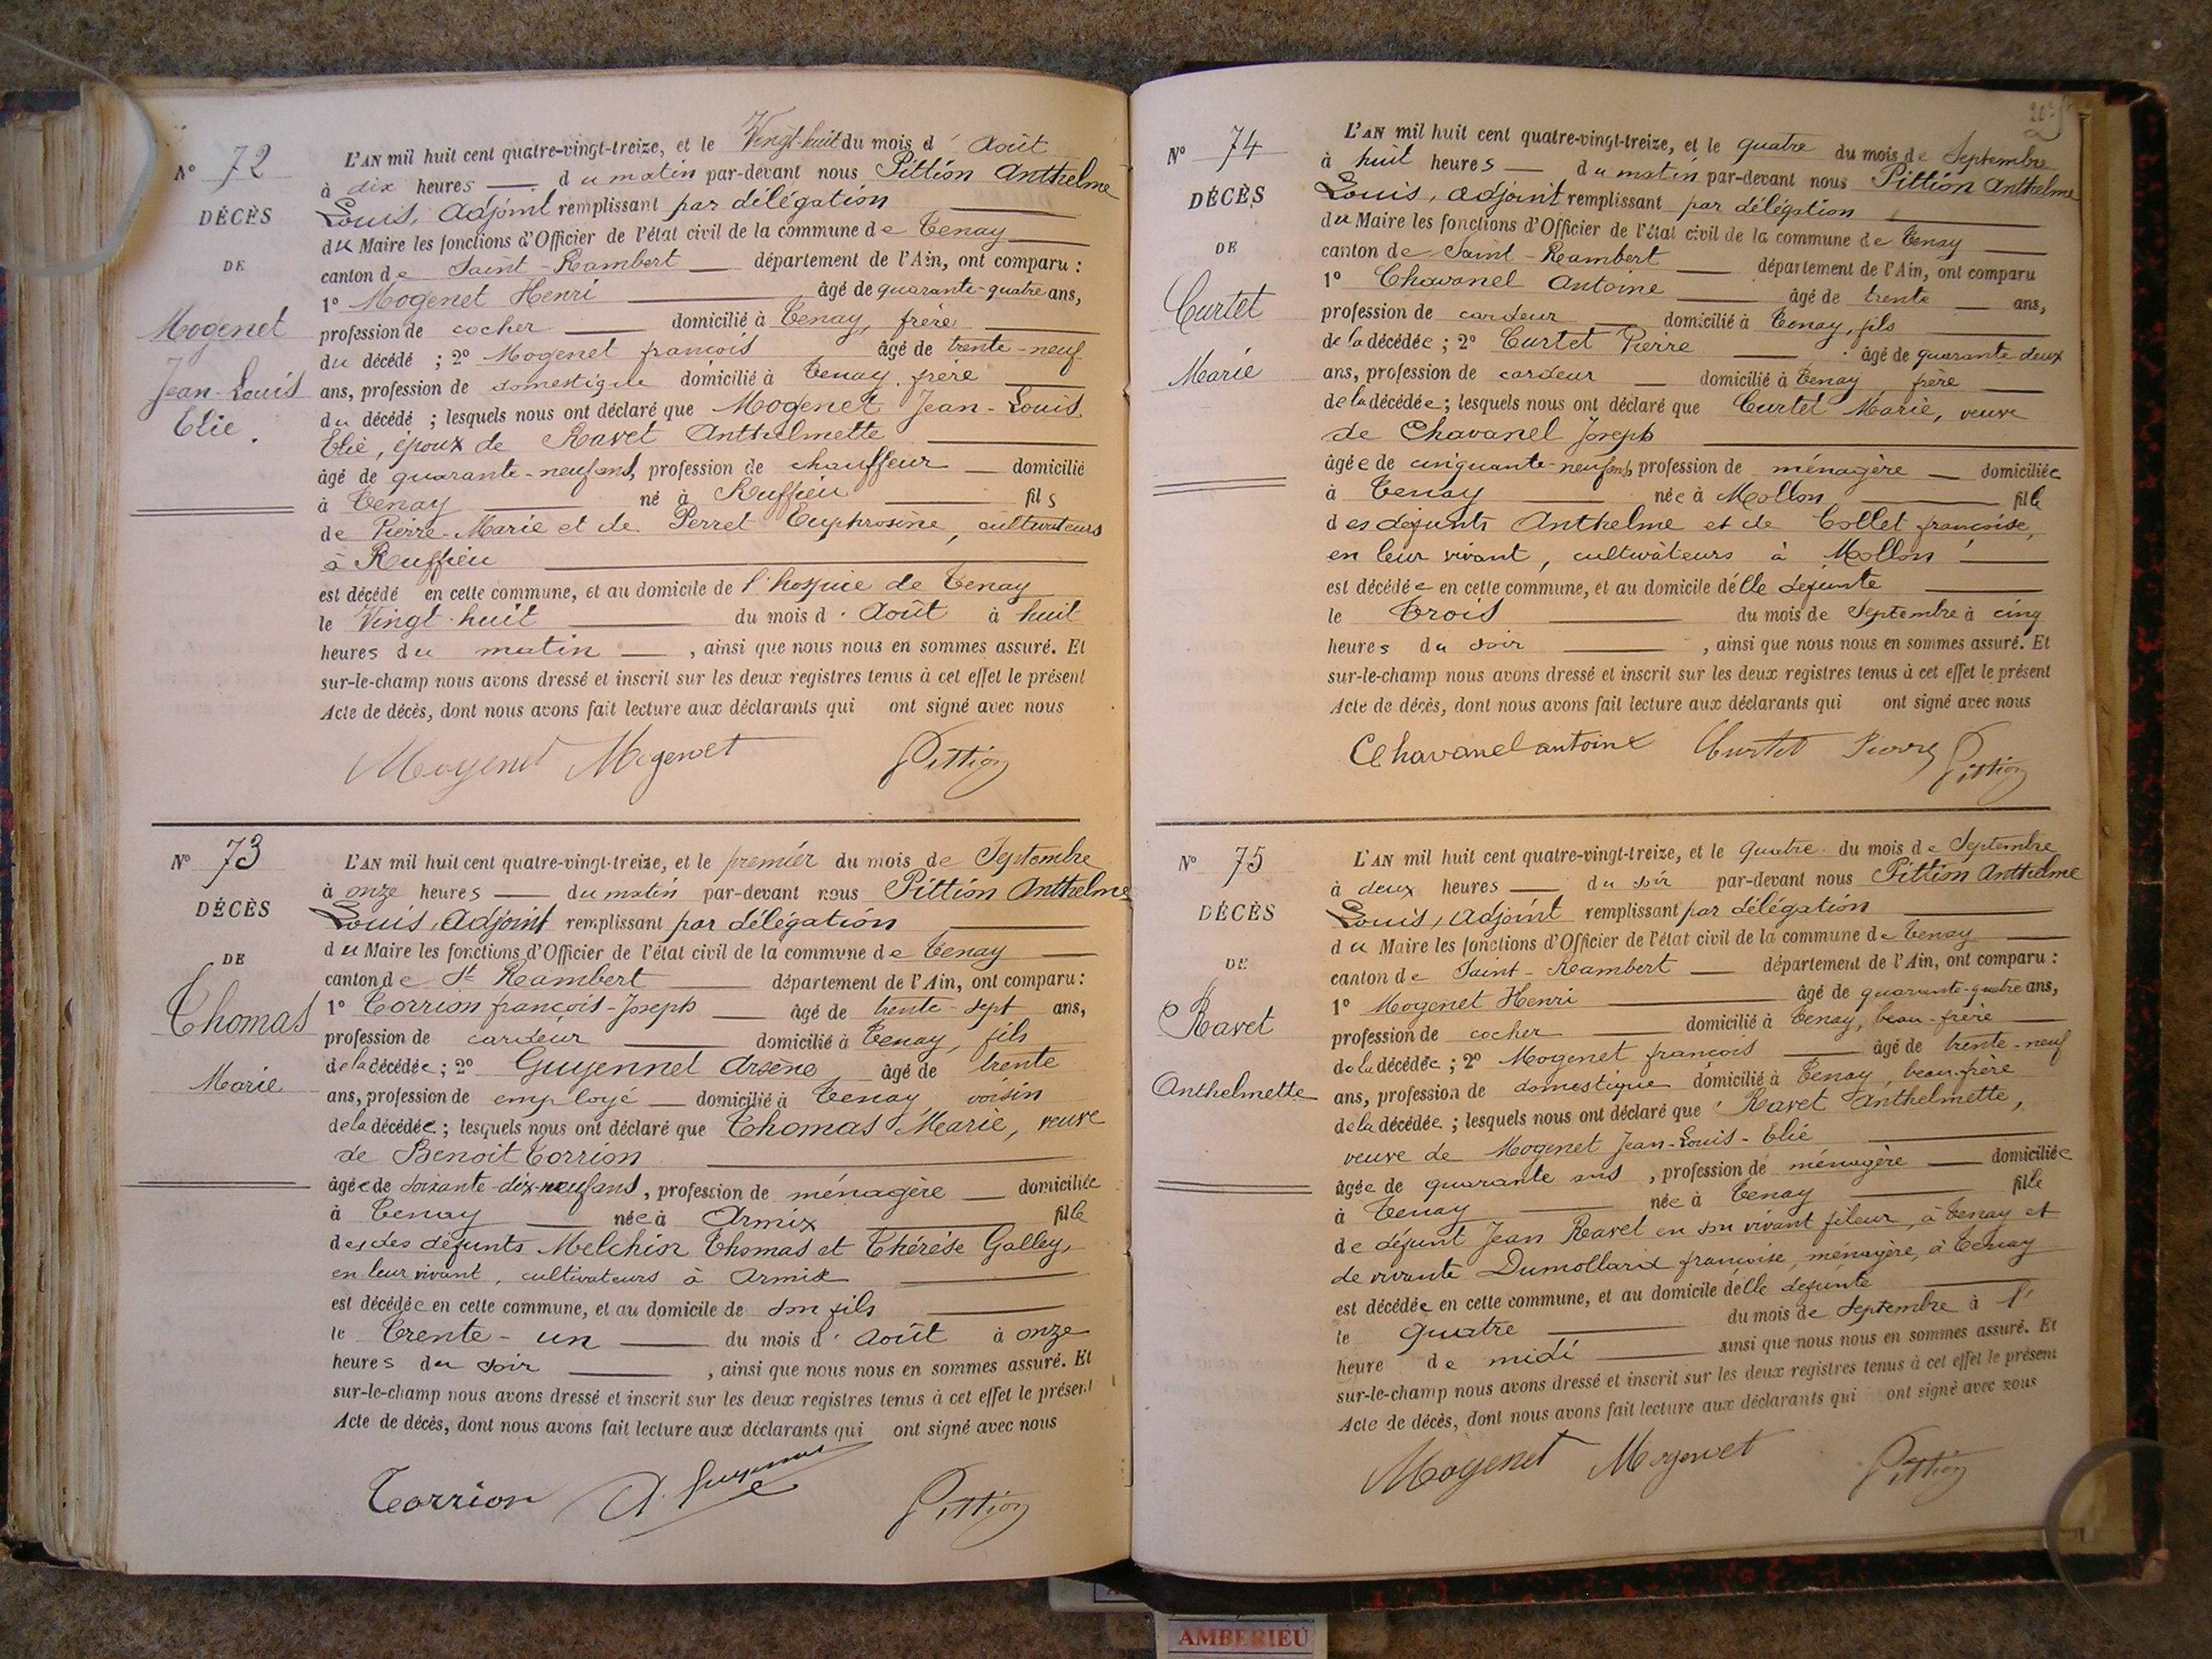 N° 72
DÉCÈS
DE
Mogenet
Jean-Louis
Elie.
L'AN mil huit cent quatre-vingt-treize, et le Vingt-huit du mois d' Août
à dix heures — du matin par-devant nous Pittion Anthelme
Louis, adjoint remplissant par délégation
du Maire les fonctions d'Officier de l'état civil de la commune de Tenay
canton de Saint-Rambert — département de l'Ain, ont comparu :
1° Mogenet Henri — âgé de quarante-quatre ans,
profession de cocher — domicilié à Tenay, frère
du décédé ; 2° Mogenet françois âgé de trente-neuf
ans, profession de domestique domicilié à Tenay, frère
du décédé ; lesquels nous ont déclaré que Mogenet Jean-Louis
Elie, époux de Ravet Anthelmette
âgé de quarante-neuf ans, profession de chauffeur — domicilié
à Tenay — né à Ruffieu — fils
de Pierre-Marie et de Perret Euphrosine, cultivateurs
à Ruffieu
est décédé en cette commune, et au domicile de l'hospice de Tenay
le Vingt-huit — du mois d' Août à huit
heures du matin — , ainsi que nous nous en sommes assuré. Et
sur-le-champ nous avons dressé et inscrit sur les deux registres tenus à cet effet le présent
Acte de décès, dont nous avons fait lecture aux déclarants qui ont signé avec nous
Mogenet Mogenet Pittion
N° 73
DÉCÈS
DE
Thomas
Marie
L'AN mil huit cent quatre-vingt-treize, et le premier du mois de Septembre
à onze heures — du matin par-devant nous Pittion Anthelme
Louis, adjoint remplissant par délégation
du Maire les fonctions d'Officier de l'état civil de la commune de Tenay
canton de St Rambert — département de l'Ain, ont comparu :
1° Torrion françois-Joseph — âgé de trente-sept ans,
profession de cardeur — domicilié à Tenay, fils
de la décédée ; 2° Guyennet Arsène âgé de trente
ans, profession de employé — domicilié à Tenay voisin
de la décédée ; lesquels nous ont déclaré que Thomas Marie, veuve
de Benoit Torrion
âgée de soixante-dix-neuf ans, profession de ménagère — domiciliée
à Tenay — née à Armix — fille
des des défunts Melchior Thomas et Thérèse Galley,
en leur vivant, cultivateurs à Armix
est décédée en cette commune, et au domicile de son fils
le Trente-un — du mois d' Août à onze
heures du soir — , ainsi que nous nous en sommes assuré. Et
sur-le-champ nous avons dressé et inscrit sur les deux registres tenus à cet effet le présent
Acte de décès, dont nous avons fait lecture aux déclarants qui ont signé avec nous
Torrion A. Guyennet Pittion
N° 74
DÉCÈS
DE
Curtet
Marie
L'AN mil huit cent quatre-vingt-treize, et le quatre du mois de Septembre
à huit heures — du matin par-devant nous Pittion Anthelme
Louis, adjoint remplissant par délégation
du Maire les fonctions d'Officier de l'état civil de la commune de Tenay
canton de Saint-Rambert — département de l'Ain, ont comparu
1° Chavanel Antoine — âgé de trente — ans,
profession de cardeur — domicilié à Tenay, fils
de la décédée ; 2° Curtet Pierre — âgé de quarante-deux
ans, profession de cardeur — domicilié à Tenay frère
de la décédée ; lesquels nous ont déclaré que Curtet Marie, veuve
de Chavanel Joseph
âgée de cinquante-neuf ans, profession de ménagère — domiciliée
à Tenay — née à Mollon — fille
des défunts Anthelme et de Collet françoise,
en leur vivant, cultivateurs à Mollon
est décédée en cette commune, et au domicile d'elle défunte
le Trois — du mois de Septembre à cinq
heures du soir — , ainsi que nous nous en sommes assuré. Et
sur-le-champ nous avons dressé et inscrit sur les deux registres tenus à cet effet le présent
Acte de décès, dont nous avons fait lecture aux déclarants qui ont signé avec nous
Chavanel antoine Curtet Pierre Pittion
N° 75
DÉCÈS
DE
Ravet
Anthelmette
L'AN mil huit cent quatre-vingt-treize, et le quatre du mois de Septembre
à deux heures — du soir par-devant nous Pittion Anthelme
Louis, adjoint remplissant par délégation
du Maire les fonctions d'Officier de l'état civil de la commune de Tenay
canton de Saint-Rambert — département de l'Ain, ont comparu :
1° Mogenet Henri — âgé de quarante-quatre ans,
profession de cocher — domicilié à Tenay, beau-frère
de la décédée ; 2° Mogenet françois — âgé de trente-neuf
ans, profession de domestique domicilié à Tenay, beau-frère
de la décédée ; lesquels nous ont déclaré que Ravet Anthelmette,
veuve de Mogenet Jean-Louis-Elie
âgée de quarante ans, profession de ménagère — domiciliée
à Tenay — née à Tenay — fille
de défunt Jean Ravet en son vivant fileur, à Tenay et
de vivante Dumollard françoise, ménagère, à Tenay
est décédée en cette commune, et au domicile d'elle défunte
le quatre — du mois de Septembre à l'
heure de midi — ainsi que nous nous en sommes assuré. Et
sur-le-champ nous avons dressé et inscrit sur les deux registres tenus à cet effet le présent
Acte de décès, dont nous avons fait lecture aux déclarants qui ont signé avec nous
Mogenet Mogenet Pittion
AMBERIEU